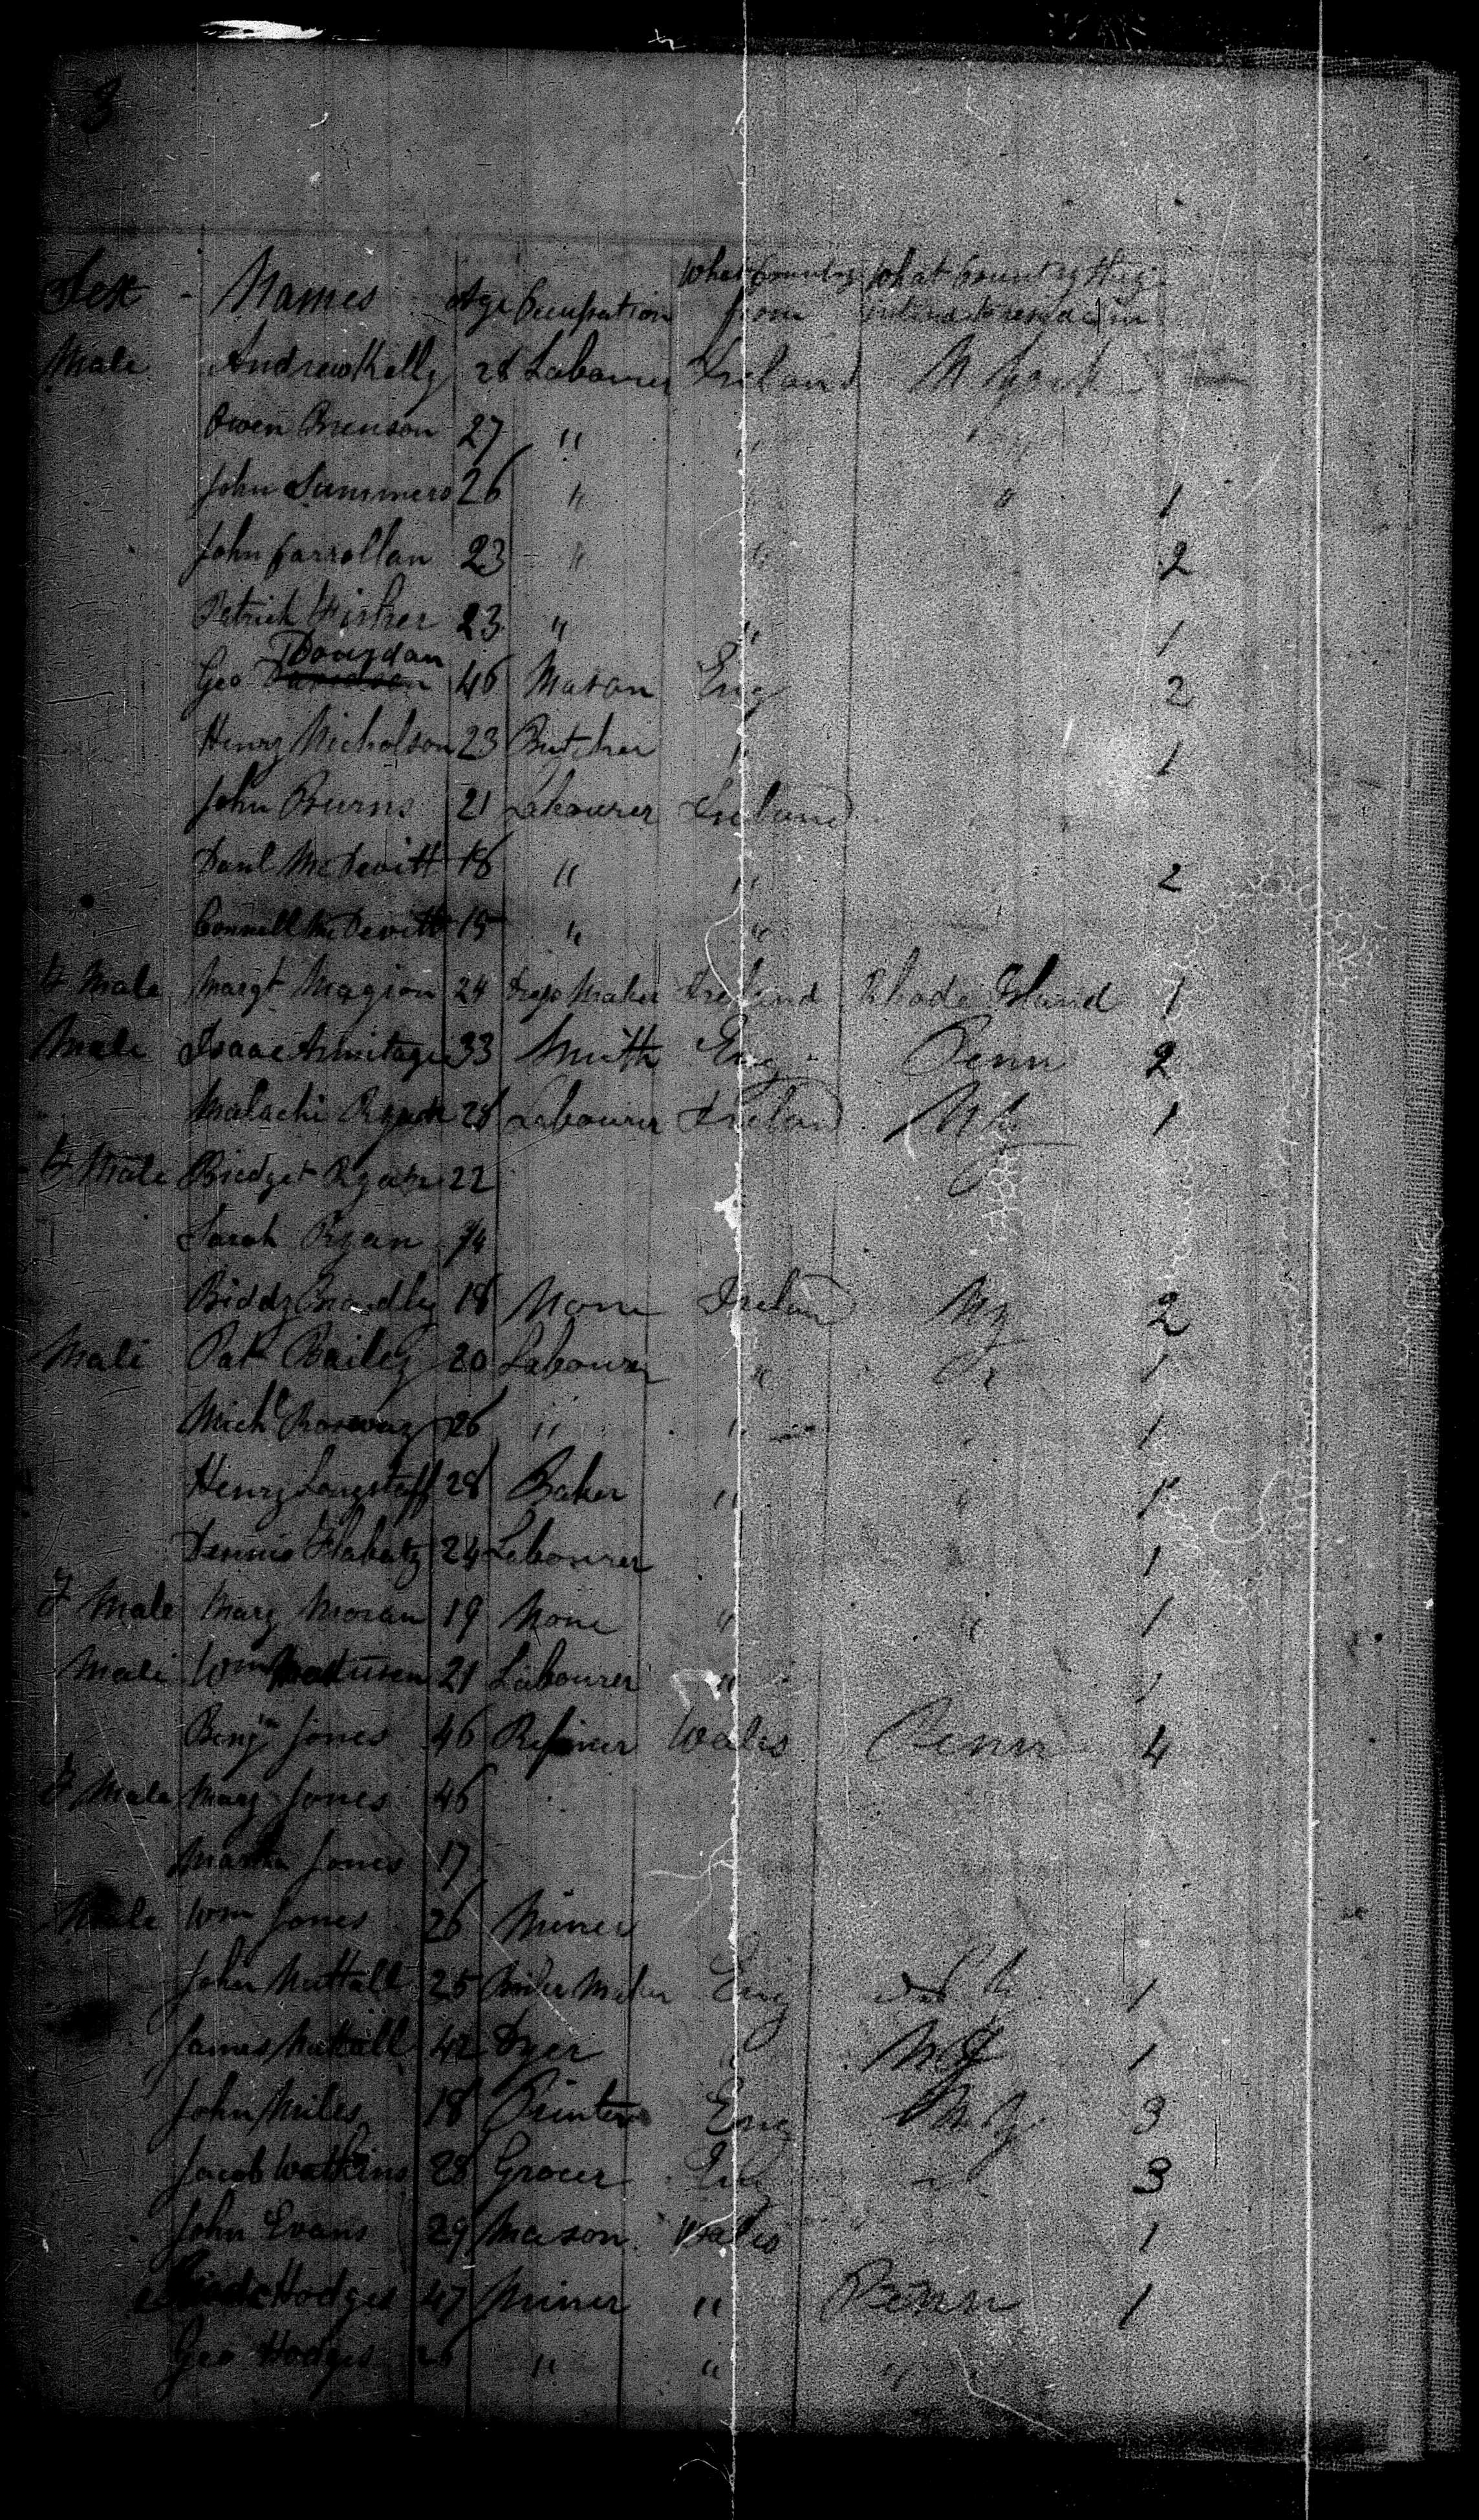 3
Sex Names Age Occupation What Country from What Country they intend to reside in
Male Andrew Kelly 28 Labourer Ireland N York
Owen Brenson 27 " " "
John Summers 26 " " 1
John Carrollan 23 " " 2
Patrick Fisher 23 " " 1
Geo Dousdan 46 Mason Eng 2
Henry Nicholson 23 Butcher " 1
John Burns 21 Labourer Ireland
Danl McDevitt 18 " " 2
Connell McDevitt 15 " "
F Male Margt Magion 24 Dress Maker Ireland Rhode Island 1
Male Isaac Armitage 33 Smith Eng Penn 2
Malachi Ryan 28 Labourer Ireland 1
F Male Bridget Ryan 22
Sarah Ryan
Biddy Bradley 18 None Ireland NY 2
Male Pat Bailey 20 Labourer " 1
Michl 26 " " " 1
Henry Longstaff 28 Baker " " 1
Dennis Flahaty 24 Labourer " 1
F Male Mary Moran 19 None " " 1
Male Wm 21 Labourer " 1
Benjn Jones 46 Refiner Wales Penn 4
F Male Mary Jones 46
Jones 17
Male Wm Jones 26 Miner
John Nuttall 25 Eng 1
James Nuttall 42 Dyer " 1
John Miles 18 Printer Eng NY 3
Jacob Watkins 28 Grocer Eng 3
John Evans 29 Mason Wales 1
Hodges 47 Miner " Penn 1
Geo Hodges 26 " " "